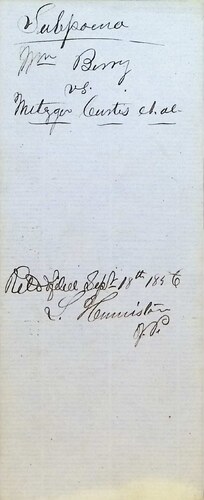 Subpoena
Wm Berry
vs.
Metzger Curtis et. al.
Sept 18th 1856
S. Humiston
J.P.